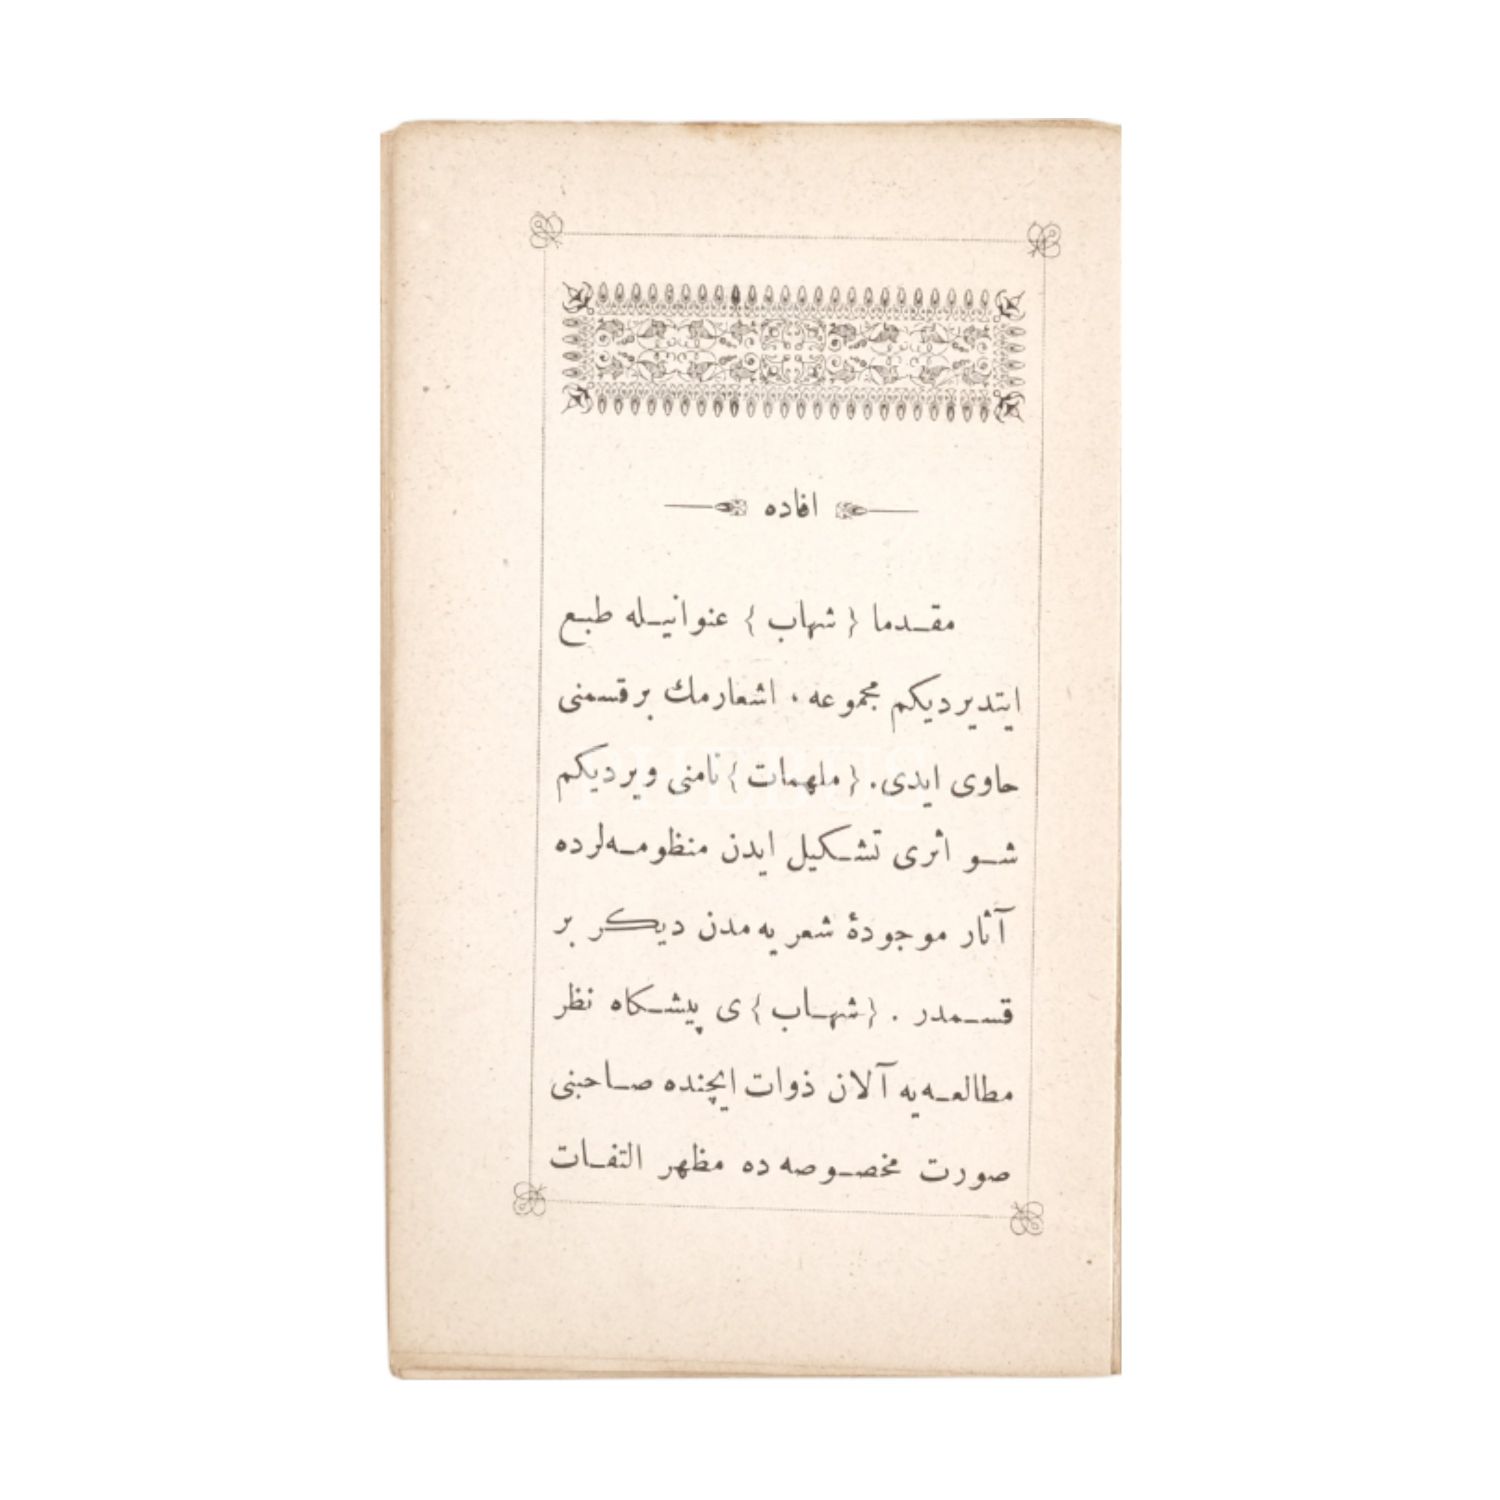 افاده
مقدما { شهاب } عنوانيله طبع
ايتديرديكم مجموعه ، اشعارمك بر قسمنى
حاوى ايدى. { ملهمات } نامنى ويرديكم
شو اثرى تشكيل ايدن منظومه‌لرده
آثار موجودهٔ شعريه‌مدن ديكر بر
قسمدر . { شهاب } ى پيشكاه نظر
مطالعه‌يه آلان ذوات ايچنده صاحبنى
صورت مخصوصه‌ده مظهر التفات